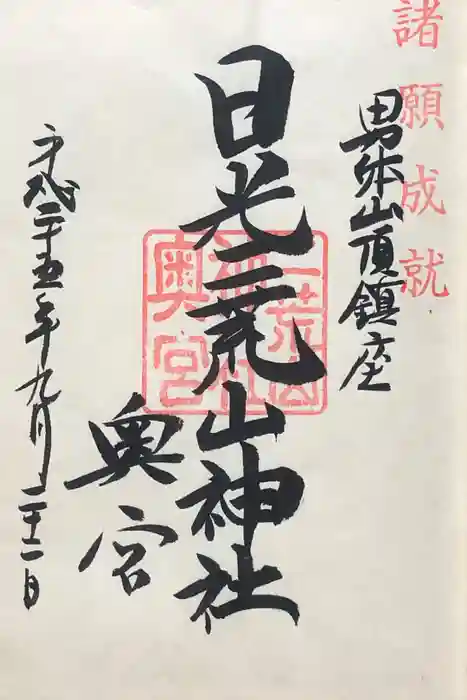 諸願成就
男体山頂鎮座
日光二荒山神社
奥宮
二荒山
神社
奥宮
平成二十五年九月二十二日